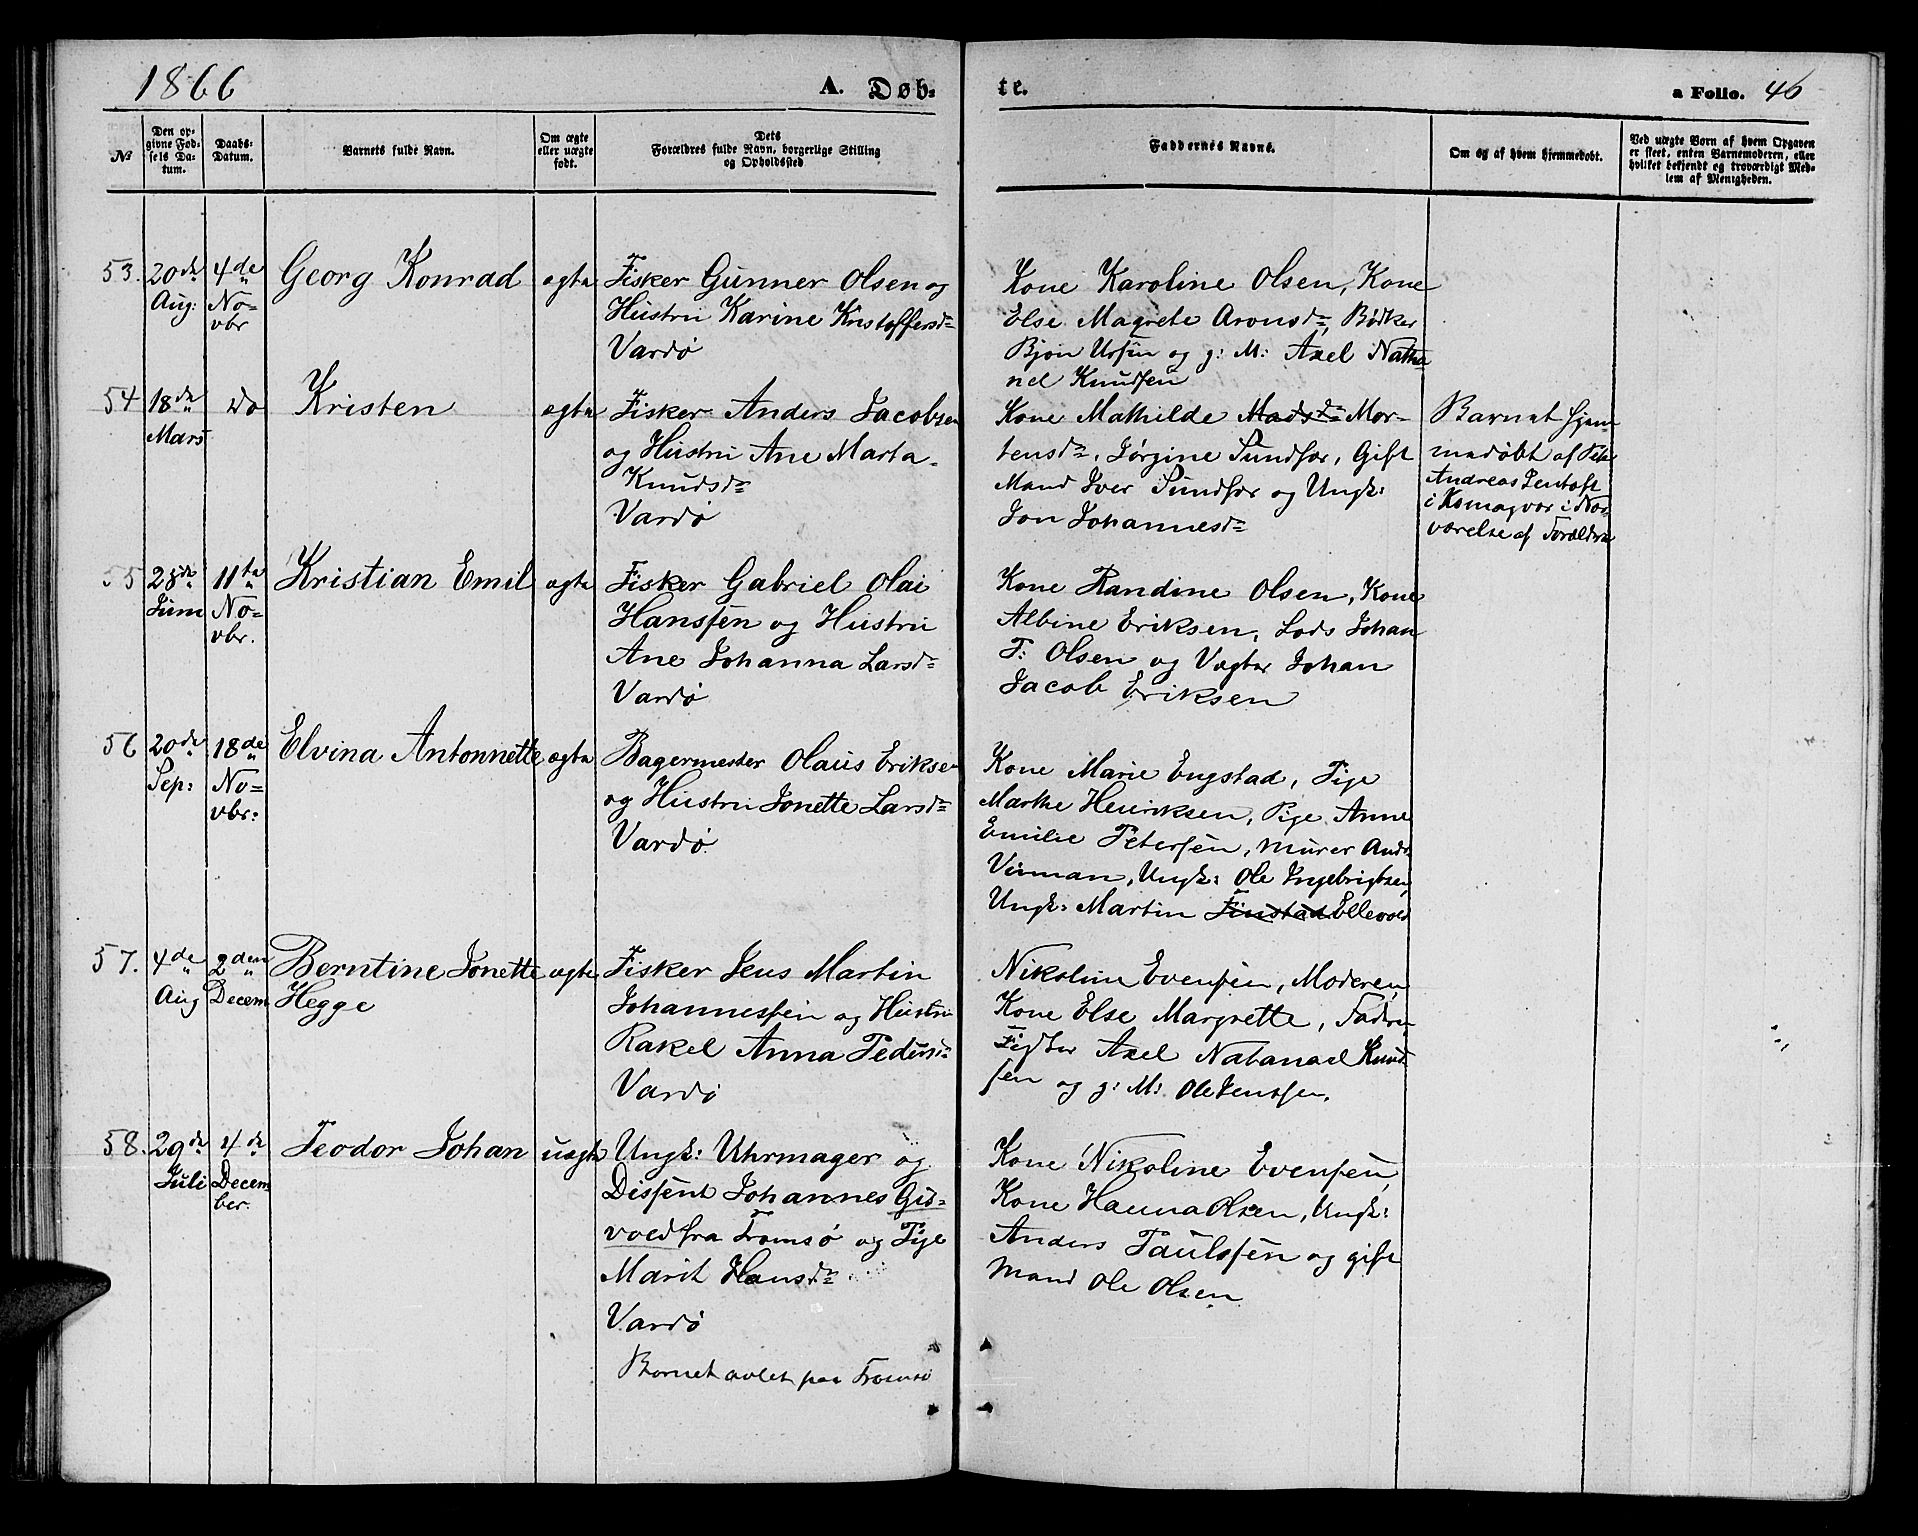 1866
A. Døb-
te.
a Folio. 46
No
Den op-
givne Fød-
sels Da-
tum.
Daabs-
Datum.
Barnets fulde Navn.
Om ægte
eller uægte
født.
Dets
Forældres fulde Navn, borgerlige Stilling
og Opholdssted
Faddernes Navne.
Om og af hvem hjemmedøbt.
Ved uægte Børn af hvem Opgaven
er skeet, enten Barnemoderen, eller
hvilket bekjendt og troværdigt Med-
lem af Menigheden.
53.
20de
Aug:
4de
No-
vbr
Georg Konrad
ægte
Fisker Gunner Olsen og
Hustru Karine Kristoffersdr
Vardø
Kone Karoline Olsen, Kone
Else Magrete Aronsdr, Bødker
Bjøn Ursin og g: M: Axel Natha
nel Knudsen
54
18de
Mars
do
Kristen
ægte
Fisker Anders Jacobsen
og Hustru Ane Marta
Knudsdr
Vardø
Kone Mathilde Madsdr Mor-
tensdr, Jørgine Sundfær, Gift
Mand Iver Sundfær og Ungk:
Jon Johannesdr
Barnet hjem-
medøbt af Peter
Andreas Jentoft
i Komagvær i Nær-
værelse af Forældre
55
28de
Juni
11te
No-
vbr.
Kristian Emil
ægte
Fisker Gabriel Olai
Hanssen og Hustru
Ane Johanna Larsdr
Vardø
Kone Randine Olsen, Kone
Albine Eriksen, Lods Johan
F: Olsen og Vægter Johan
Jacob Eriksen
56
20de
Sep:
18de
No-
vbr:
Elvina Antonnette
ægte
Bagermester Olaus Eriksen
og Hustru Jonette Larsdr
Vardø
Kone Marie Engstad, Pige
Marthe Henriksen, Pige Anne
Emilie Petersen, Murer Andr
Vinman, Ungk: Ole Ingebrigtsen,
Ungk: Martin Finstad Ellevold
57.
4de
Aug
2den
Decem
Berntine Jonette
Hegge
ægte
Fisker Jens Martin
Johannessen og Hustru
Rakel Anna Pedersdr
Vardø
Nikoline Evensen, Moderen,
Kone Else Margrette, Faderen
Figter Axel Natanael Knud
sen og g: M: Ole Jentsen.
58.
29de
Juli
4de
Decem
ber.
Teodor Johan
uægte
Ungk: Uhrmager og
Dissent Johannes Gis-
vold fra Tromsø og Pige
Marit Hansdr
Vardø
Barnet avlet paa Tromsø
Kone Nikoline Evensen,
Kone Hanna Olsen, Ungk:
Anders Paulssen og gift
Mand Ole Olsen